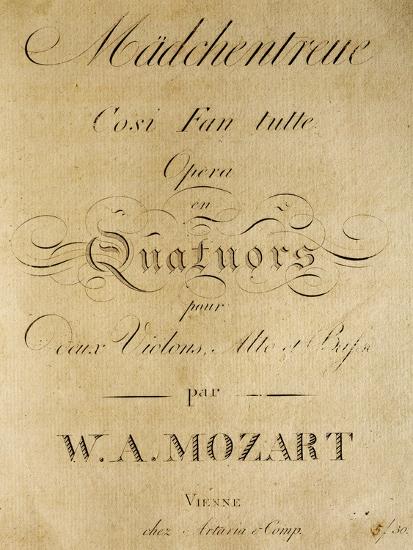 Mädchentreue
Cosi Fan tutte
Opera
en
Quatuors
pour
deux Violons, Alto et Basse
par
W. A. MOZART
VIENNE
chez Artaria & Comp. 5/30